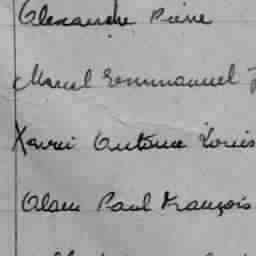 Alexandre Pierre
Marcel Emmanuel
Xavier Antoine Louis
Alain Paul François